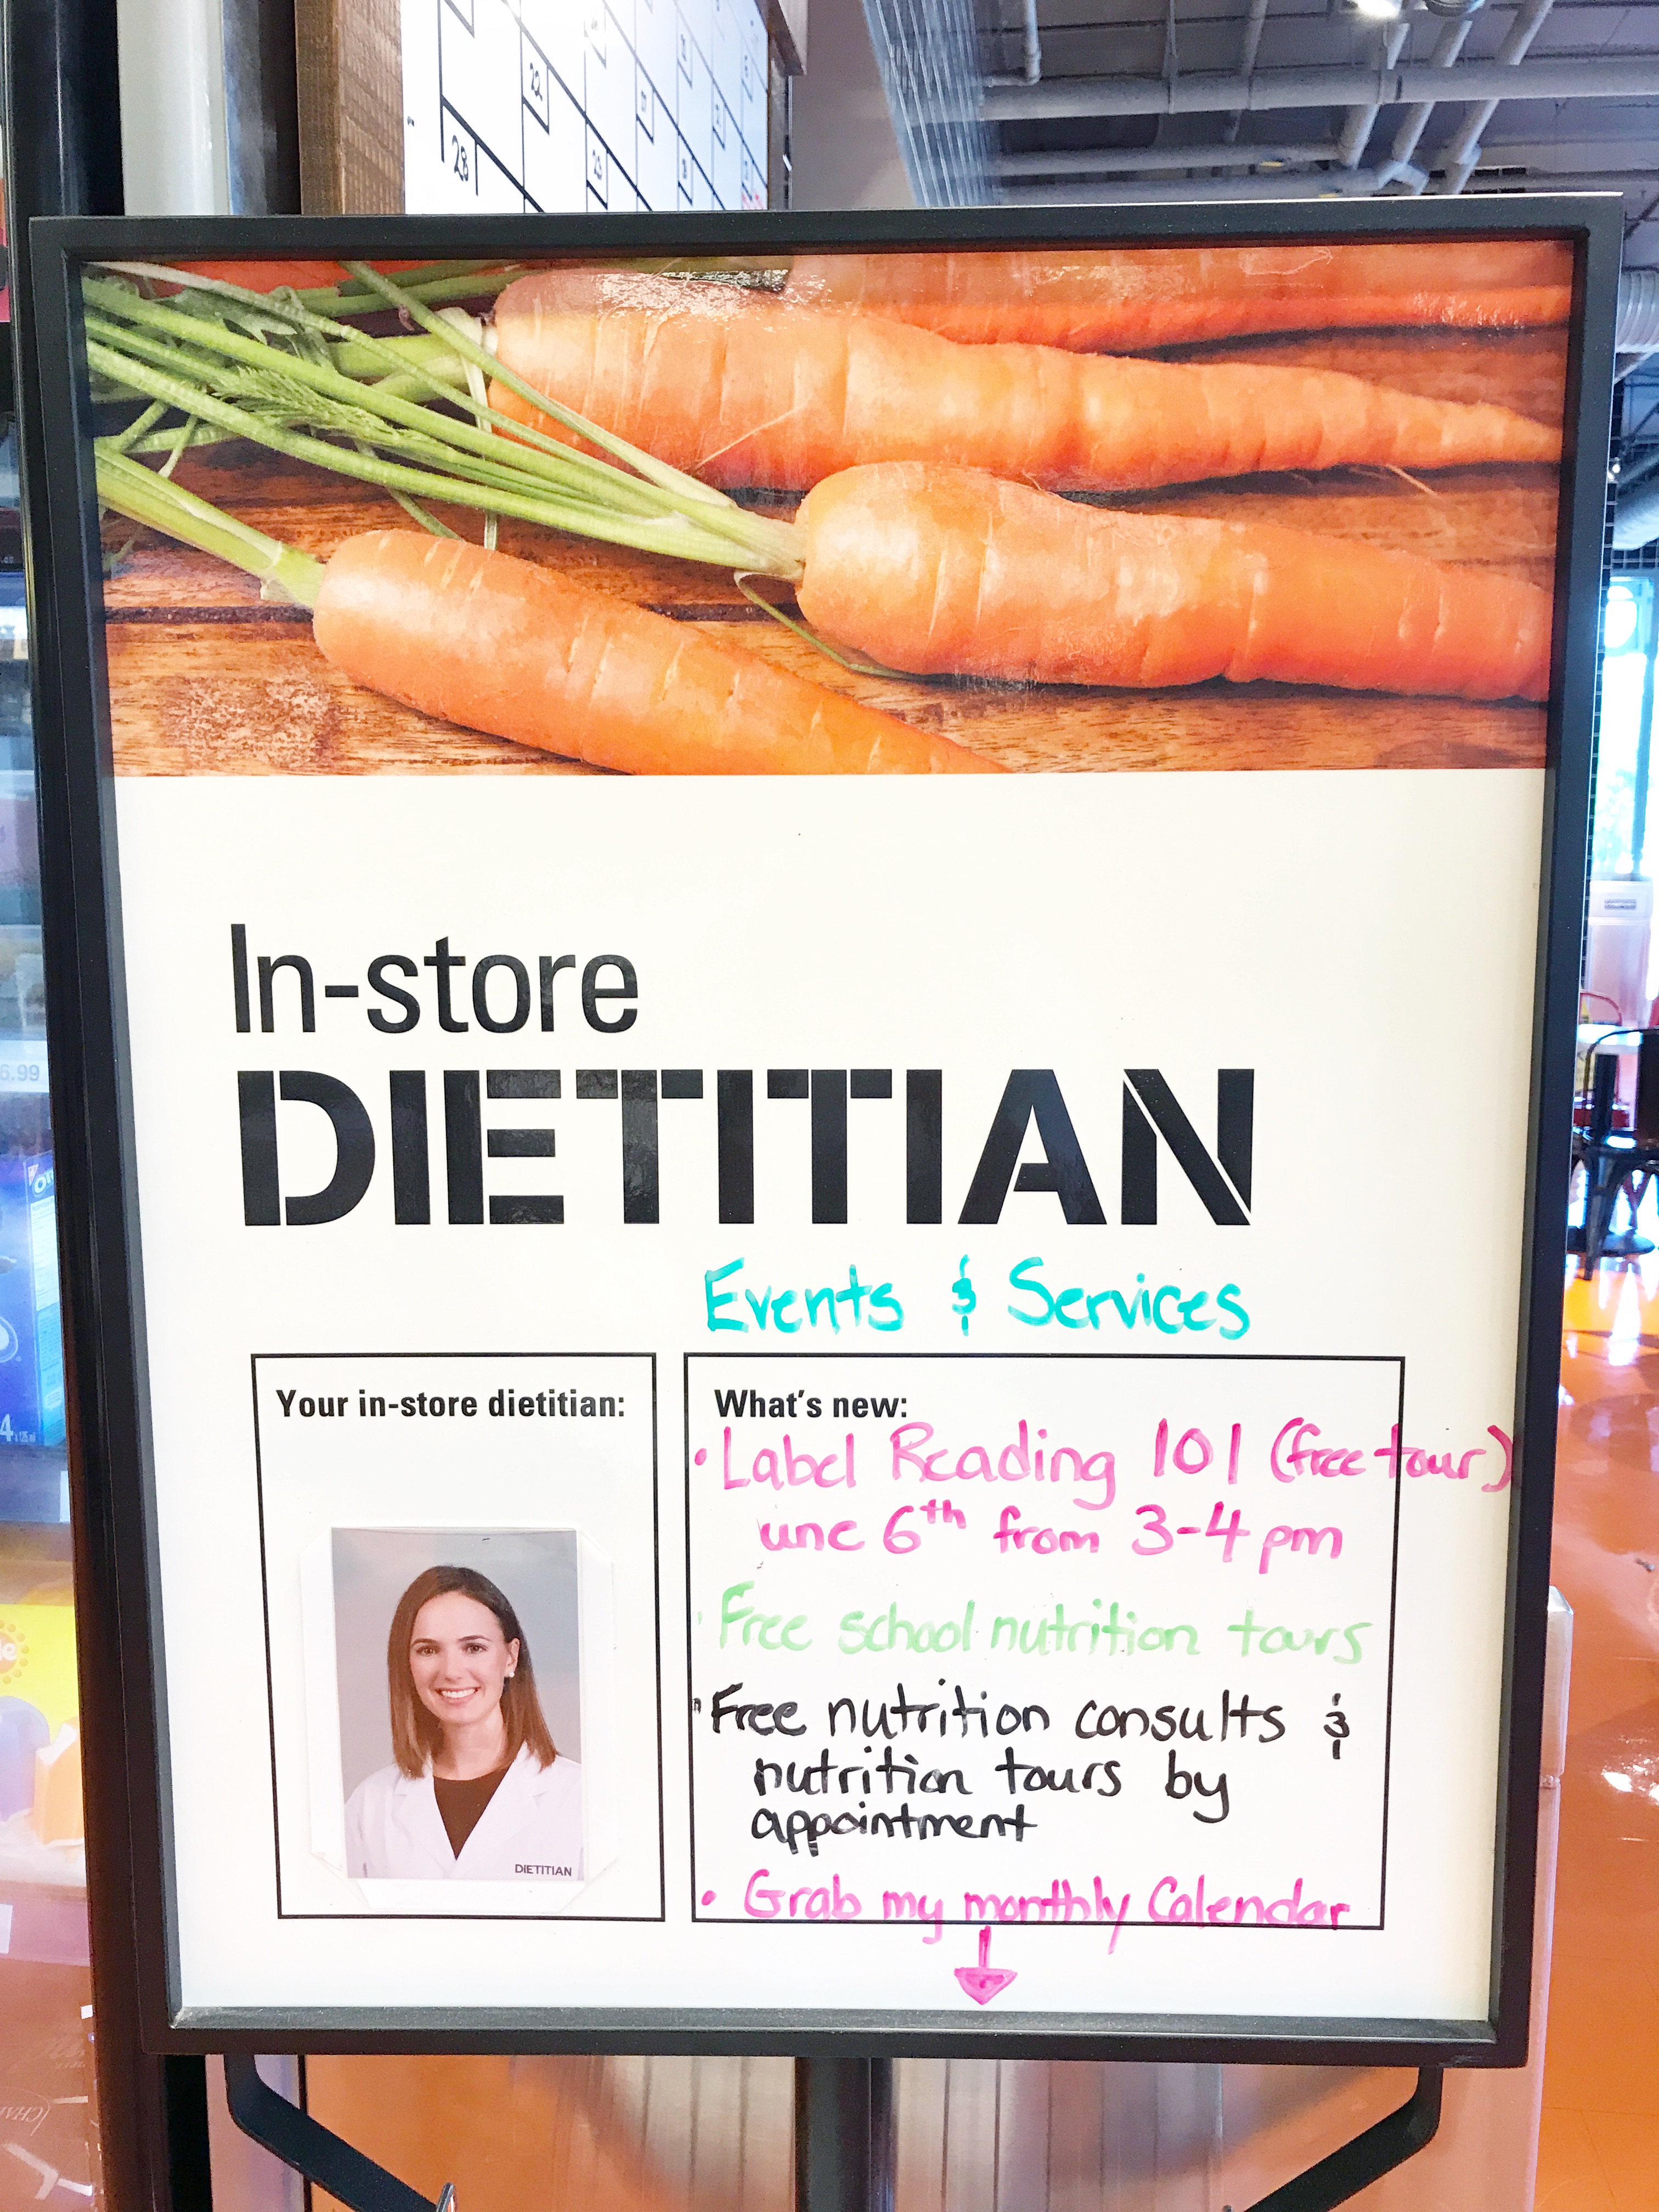 22
28
25
In-store
DIETITIAN
Events & Services
Your in-store dietitian:
DIETITIAN
What's new:
• Label Reading 101 (free tour)
une 6th from 3-4 pm
• Free school nutrition tours
• Free nutrition consults &
nutrition tours by
appointment
• Grab my monthly Calendar
6.99